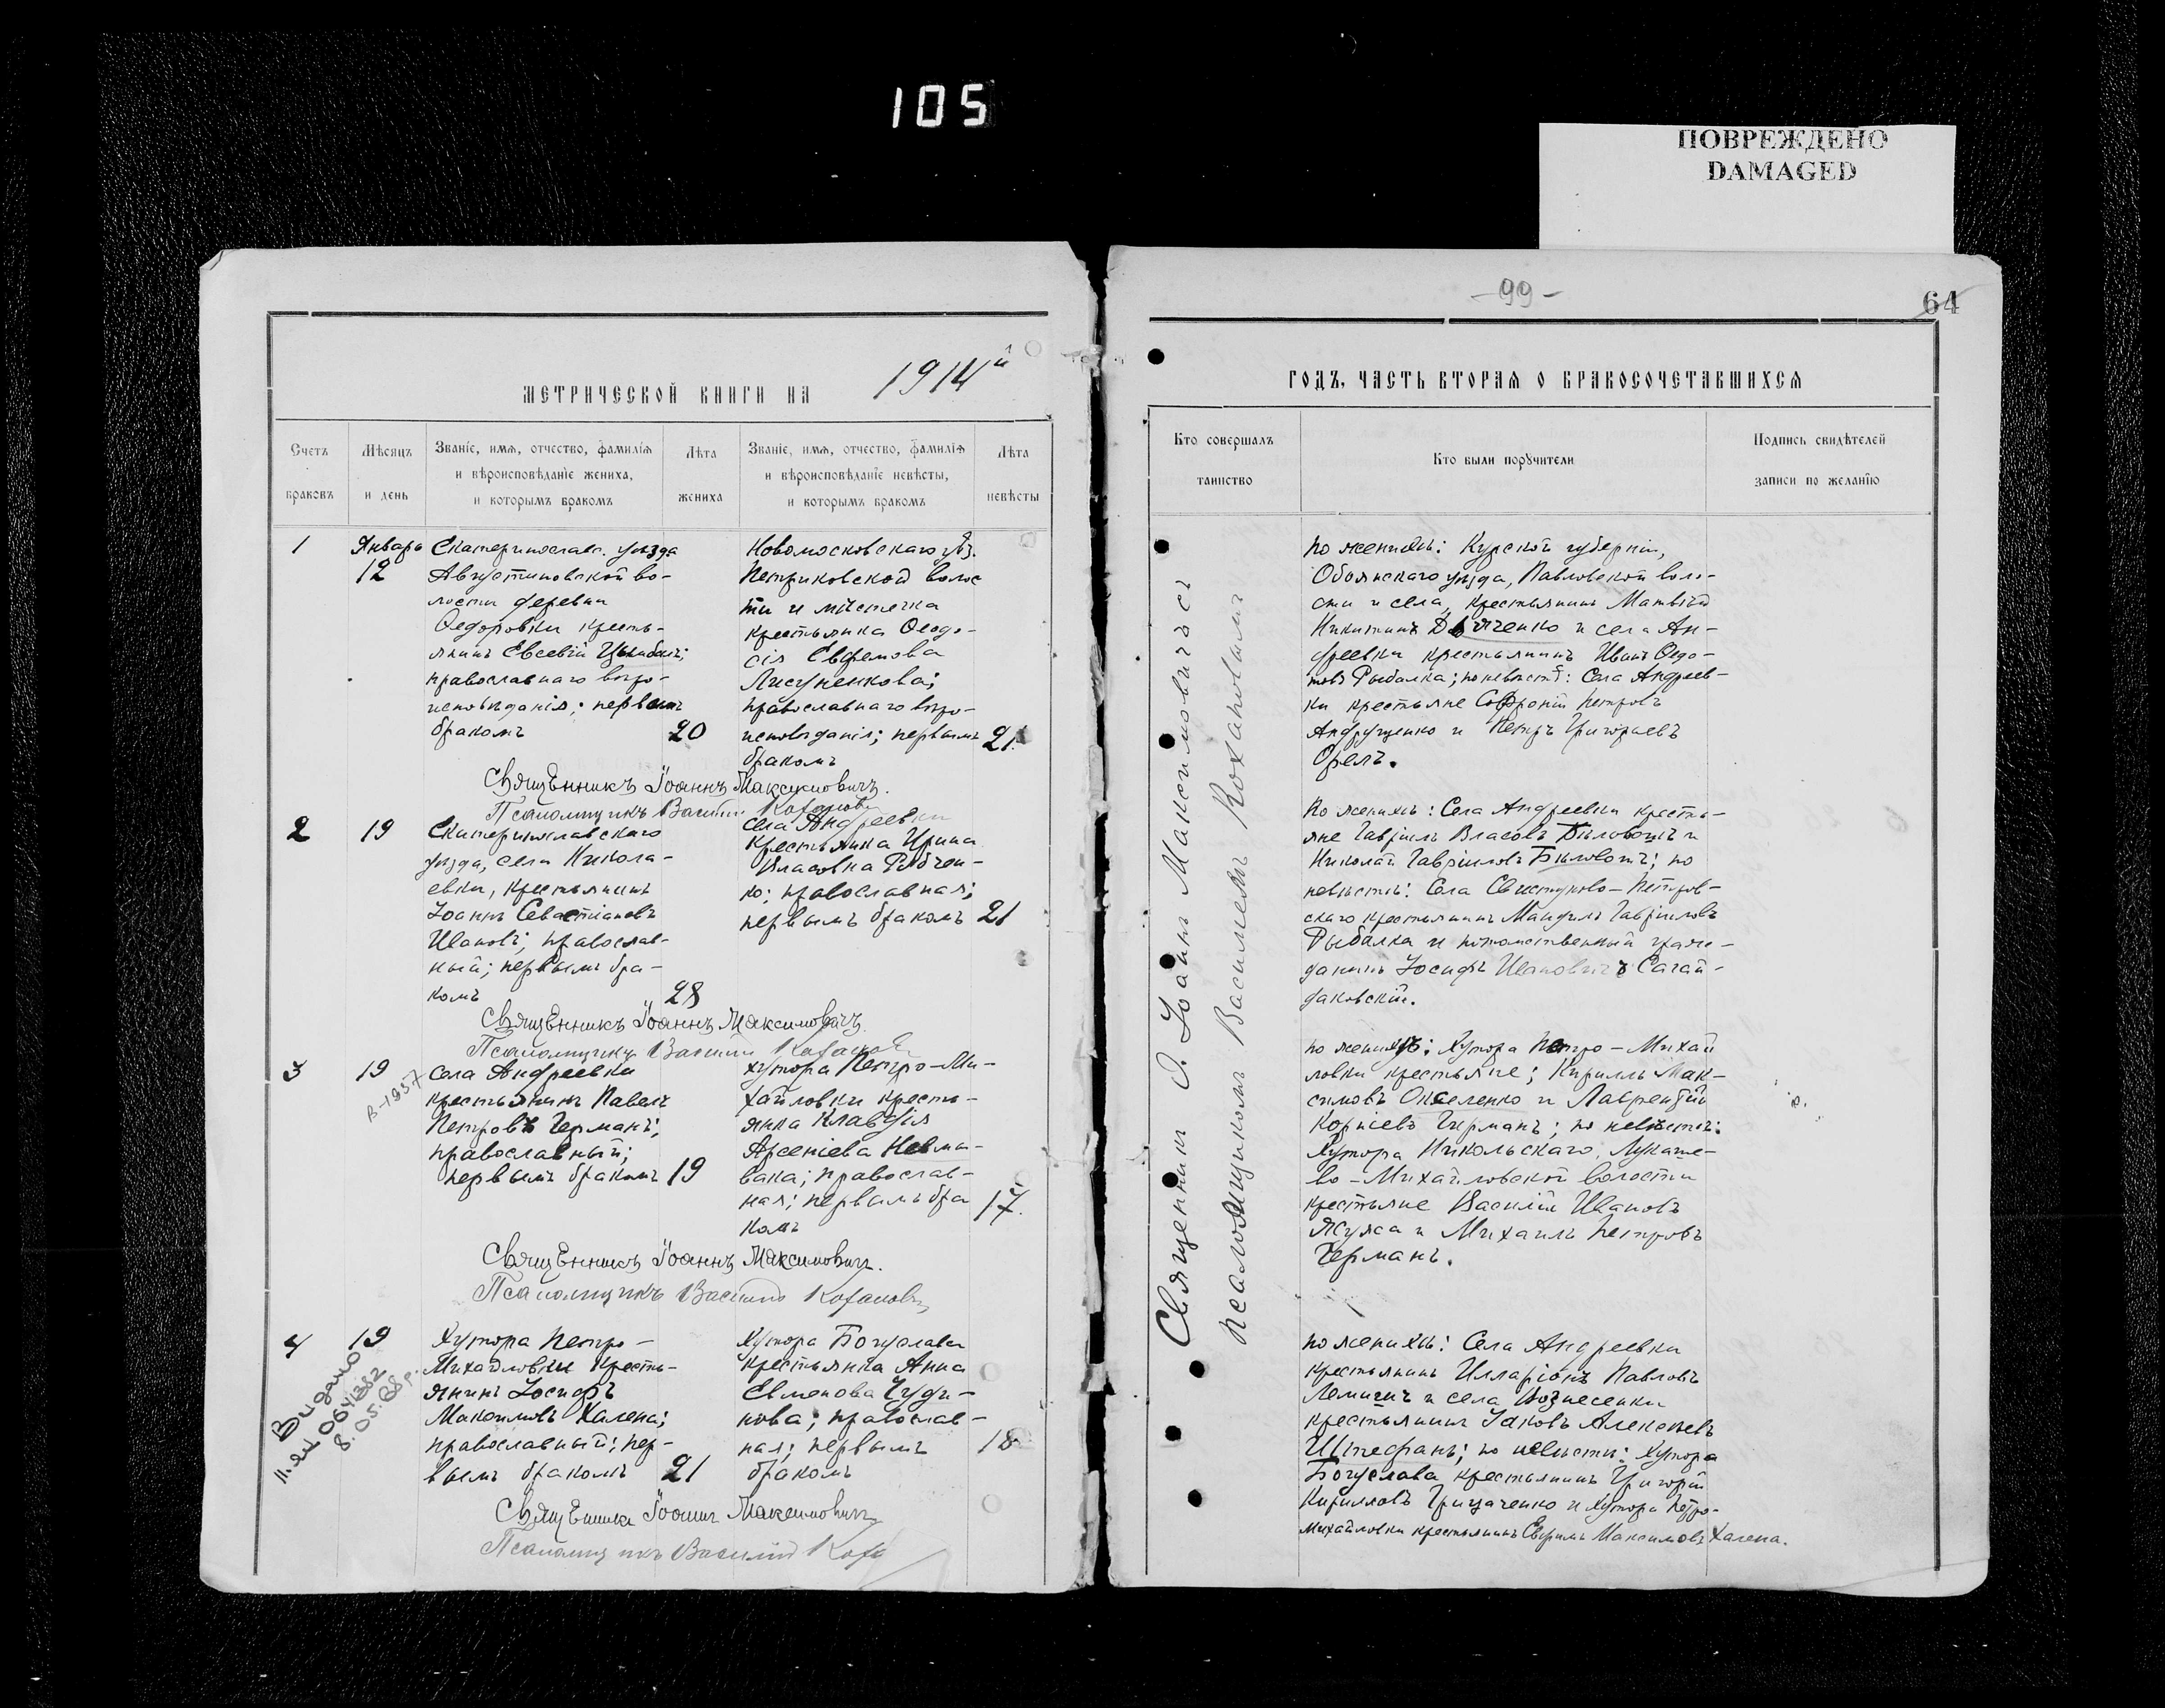 105
ПОВРЕЖДЕНО
DAMAGED
МЕТРИЧЕСКОЙ КНИГИ НА 1914й
Счетъ браковъ
Мѣсяцъ и день
Званіе, имя, отчество, фамилія и вѣроисповѣданіе жениха, и которымъ бракомъ
Лѣта жениха
Званіе, имя, отчество, фамилія и вѣроисповѣданіе невѣсты, и которымъ бракомъ
Лѣта невѣсты
1
Января
12
Екатеринослав. уѣзда
Августиновской во-
лости деревни
Ѳедоровки кресть-
янинъ Евсевій
православнаго вѣро-
исповѣданія; первымъ
бракомъ
20
Новомосковскаго уѣз.
Петриковской волос
ти и мѣстечка
крестьянка Ѳеодо-
сія Ефремова
Лисуненкова;
православнаго вѣро-
исповѣданія; первымъ
бракомъ
21.
Священникъ Іоаннъ Максимовичъ.
Псаломщикъ Василій Кохановъ
2
19
Екатеринославскаго
уѣзда, села Никола-
евки, крестьянинъ
Іоаннъ Севастіановъ
Ивановъ; православ-
ный; первымъ бра-
комъ
28
села Андреевки
крестьянка Ирина
Власовна Рябчен-
ко; православная;
первымъ бракомъ
21
Священникъ Іоаннъ Максимовичъ.
Псаломщикъ Василій Кохановъ
3
19
В-1957
села Андреевки
крестьянинъ Павелъ
Петровъ Германъ;
православный;
первымъ бракомъ
19
хутора Петро-Ми-
хайловки кресть-
янка Клавдія
Арсеніева Невма-
вака; православ-
ная; первымъ бра
комъ
17.
Священникъ Іоаннъ Максимовичъ.
Псаломщикъ Василій Кохановъ
4
19
Видано
064382
8.05.88р.
Хутора Петро-
Михайловки кресть-
янинъ Іосифъ
Максимовъ Халена;
православный; пер-
вымъ бракомъ
21
Хутора Богуслава
крестьянка Анна
Евменова Чуди-
нова; православ-
ная; первымъ
бракомъ
18
Священникъ Іоаннъ Максимовичъ
Псаломщикъ Василій Коха
-99-
64
ГОДЪ, ЧАСТЬ ВТОРАЯ О БРАКОСОЧЕТАВШИХСЯ
Кто совершалъ таинство
Кто были поручители
Подпись свидѣтелей записи по желанію
Священникъ О. Іоаннъ Максимовичъ съ
псаломщикомъ Василіемъ Кохановымъ
По женихѣ: Курской губерніи,
Обоянскаго уѣзда, Павловской воло-
сти и села, крестьянинъ Матвѣй
Никитинъ Дьяченко и села Ан-
дреевки крестьянинъ Иванъ Ѳедо-
товъ Рыбалка; по невѣстѣ: Села Андреев-
ки крестьяне Софроній Петровъ
Андрущенко и Петръ Григорьевъ
Орелъ.
По женихѣ: Села Андреевки кресть-
яне Гавріилъ Власовъ Бѣловолъ и
Николай Гавріиловъ Бѣловолъ; по
невѣстѣ: Села Свистуново-Петров-
скаго крестьянинъ Гавріиловъ
Рыбалка и потомственный граж-
данинъ Іосифъ Ивановичъ Сагай-
даковскій.
по женихѣ: Хутора Петро-Михай
ловки крестьяне; Кириллъ Мак-
симовъ и Лаврентій
Корніевъ Германъ; по невѣстѣ:
Хутора Никольскаго, Лукаше-
во-Михайловской волости
крестьяне Василій Ивановъ
и Михаилъ Петровъ
Германъ.
по женихѣ: Села Андреевки
крестьянинъ Илларіонъ Павловъ
и села Вознесенки
крестьянинъ Іаковъ Алексѣевъ
Штефанъ; по невѣсти: Хутора
Богуслава крестьянинъ Григорій
Кирилловъ Грицаченко и хутора Петро-
Михайловки крестьянинъ Ефимъ Максимовъ Халена.